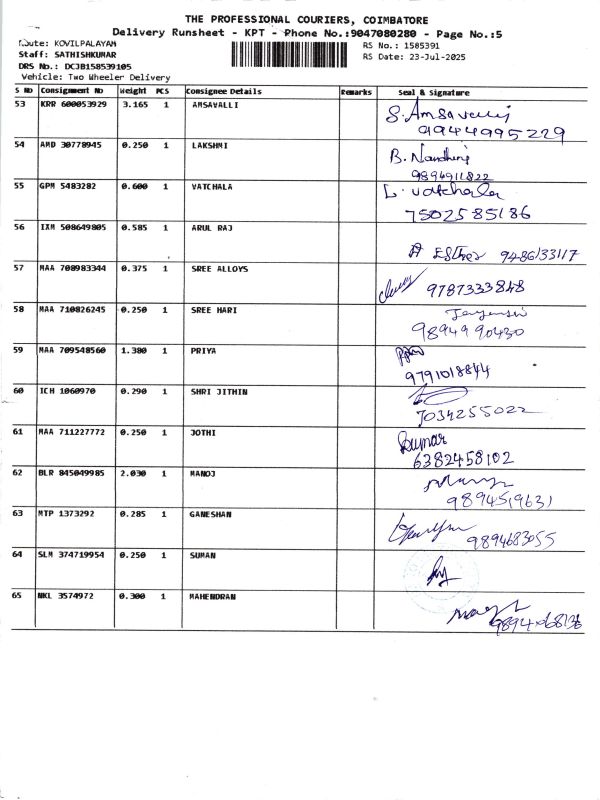 THE PROFESSIONAL COURIERS, COIMBATORE
Delivery Runsheet - KPT - Phone No.:9047080280 - Page No.:5
Route: KOVILPALAYAM
RS No.: 1585391
Staff: SATHISHKUMAR
RS Date: 23-Jul-2025
DRS No.: DCJB158539105
Vehicle: Two Wheeler Delivery
S NO Consignment No Weight PCS Consignee Details Remarks Seal & Signature
53 KRR 600053929 3.165 1 AMSAVALLI S. Amsavalli
9944995229
54 AMD 30778945 0.250 1 LAKSHMI B. Nandhini
9894911822
55 GPM 5483282 0.600 1 VATCHALA L. vatchala
7502585186
56 IXM 508649805 0.585 1 ARUL RAJ
Esther 9486133117
57 MAA 708983344 0.375 1 SREE ALLOYS
9787333848
58 MAA 710826245 0.250 1 SREE HARI
9894990430
59 MAA 709548560 1.380 1 PRIYA
9791018844
60 ICH 1060970 0.290 1 SHRI JITHIN
7034255022
61 MAA 711227772 0.250 1 JOTHI Kumar
6382458102
62 BLR 845049985 2.030 1 MANOJ
9894519631
63 MTP 1373292 0.285 1 GANESHAN
9894683055
64 SLM 374719954 0.250 1 SUMAN
65 NKL 3574972 0.300 1 MAHENDRAN